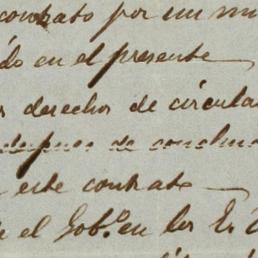 contrato por un
do en el presente
derechos de circula
despues de conclu
este contrato
el Gob.º en los E.